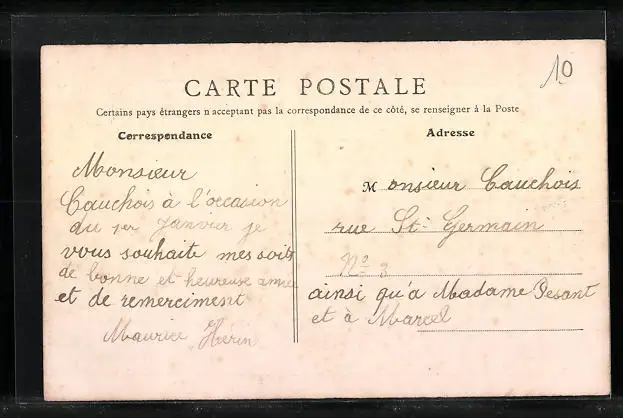 10
CARTE POSTALE
Certains pays étrangers n acceptant pas la correspondance de ce côté, se renseigner à la Poste
Correspondance
Monsieur
Cauchois à l'occasion
du 1er Janvier je
vous souhaite mes
de bonne et heureuse
et de remerciment
Maurice Hérin
Adresse
Monsieur Cauchois
rue St-Germain
No 3
ainsi qu'à Madame Pesant
et à Marcel